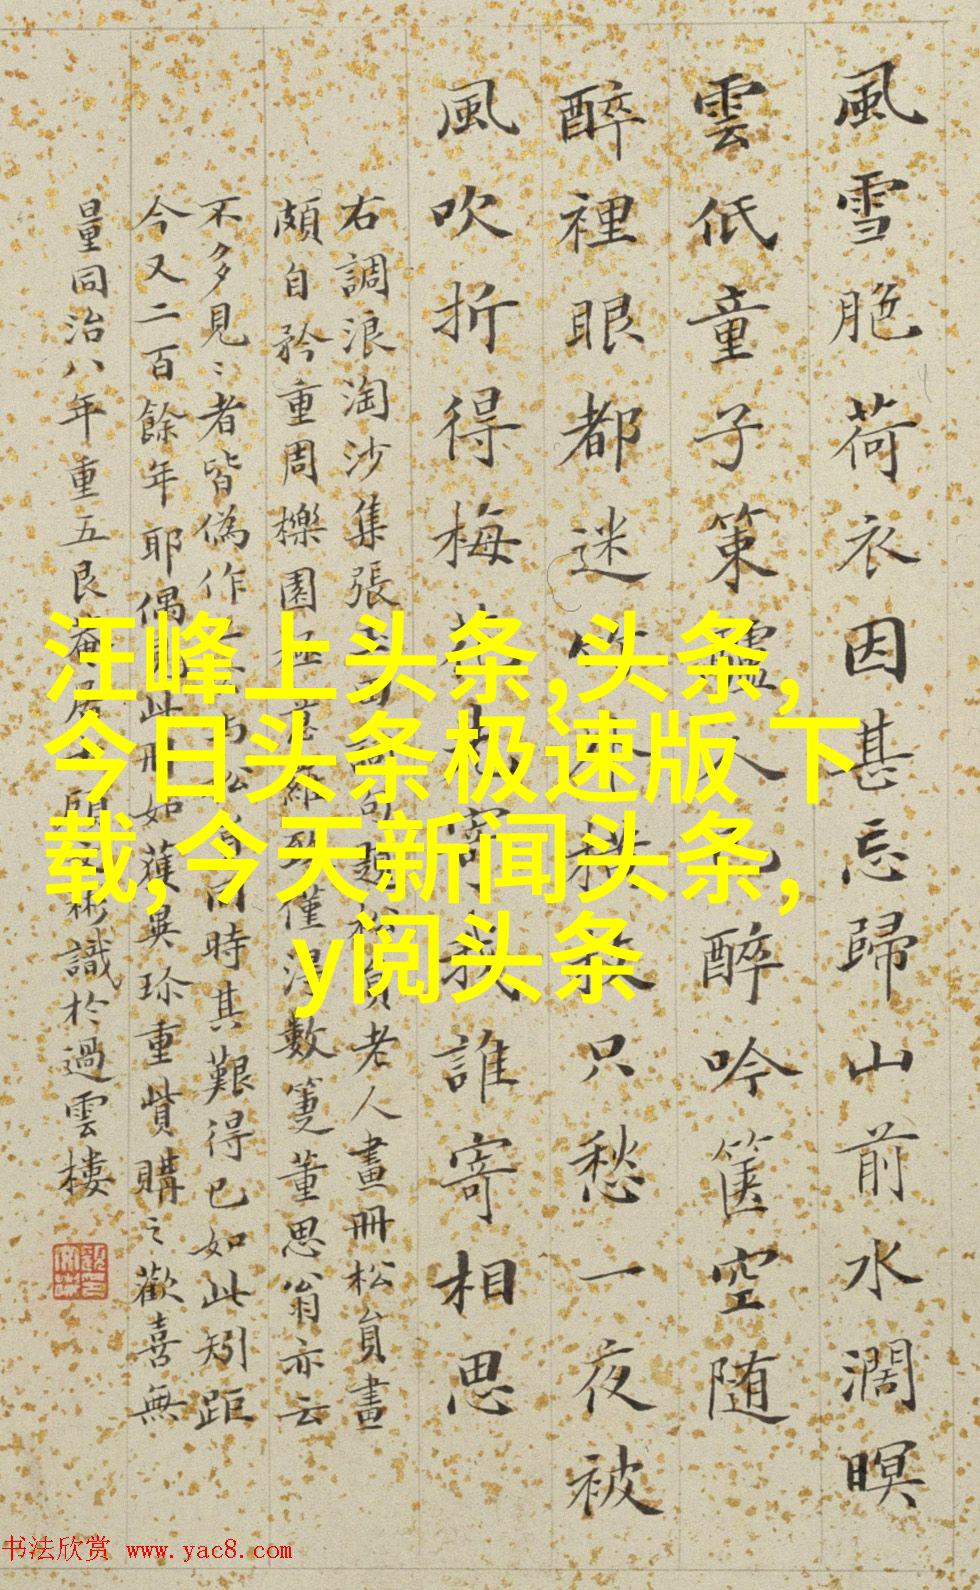 風雪脃荷衣因甚忘歸山前水濶暝
雲低童子策驢人醉吟篋空随
醉裡眼都迷只愁一夜被
風吹折得梅我誰寄相思
右調浪淘沙集張老人畫冊松負畫
頗自矜重周櫟園極僅淂數箑董思翁亦云
不多見〻者皆偽作同時其艱得已如此矧距
今又二百餘年耶偶此冊如獲異珍重貲購之歡喜無
量同治八年重五艮識於過雲樓
汪峰上头条,头条,
今日头条极速版 下
载,今天新闻头条,
y阅头条
书法欣赏 www.yac8.com